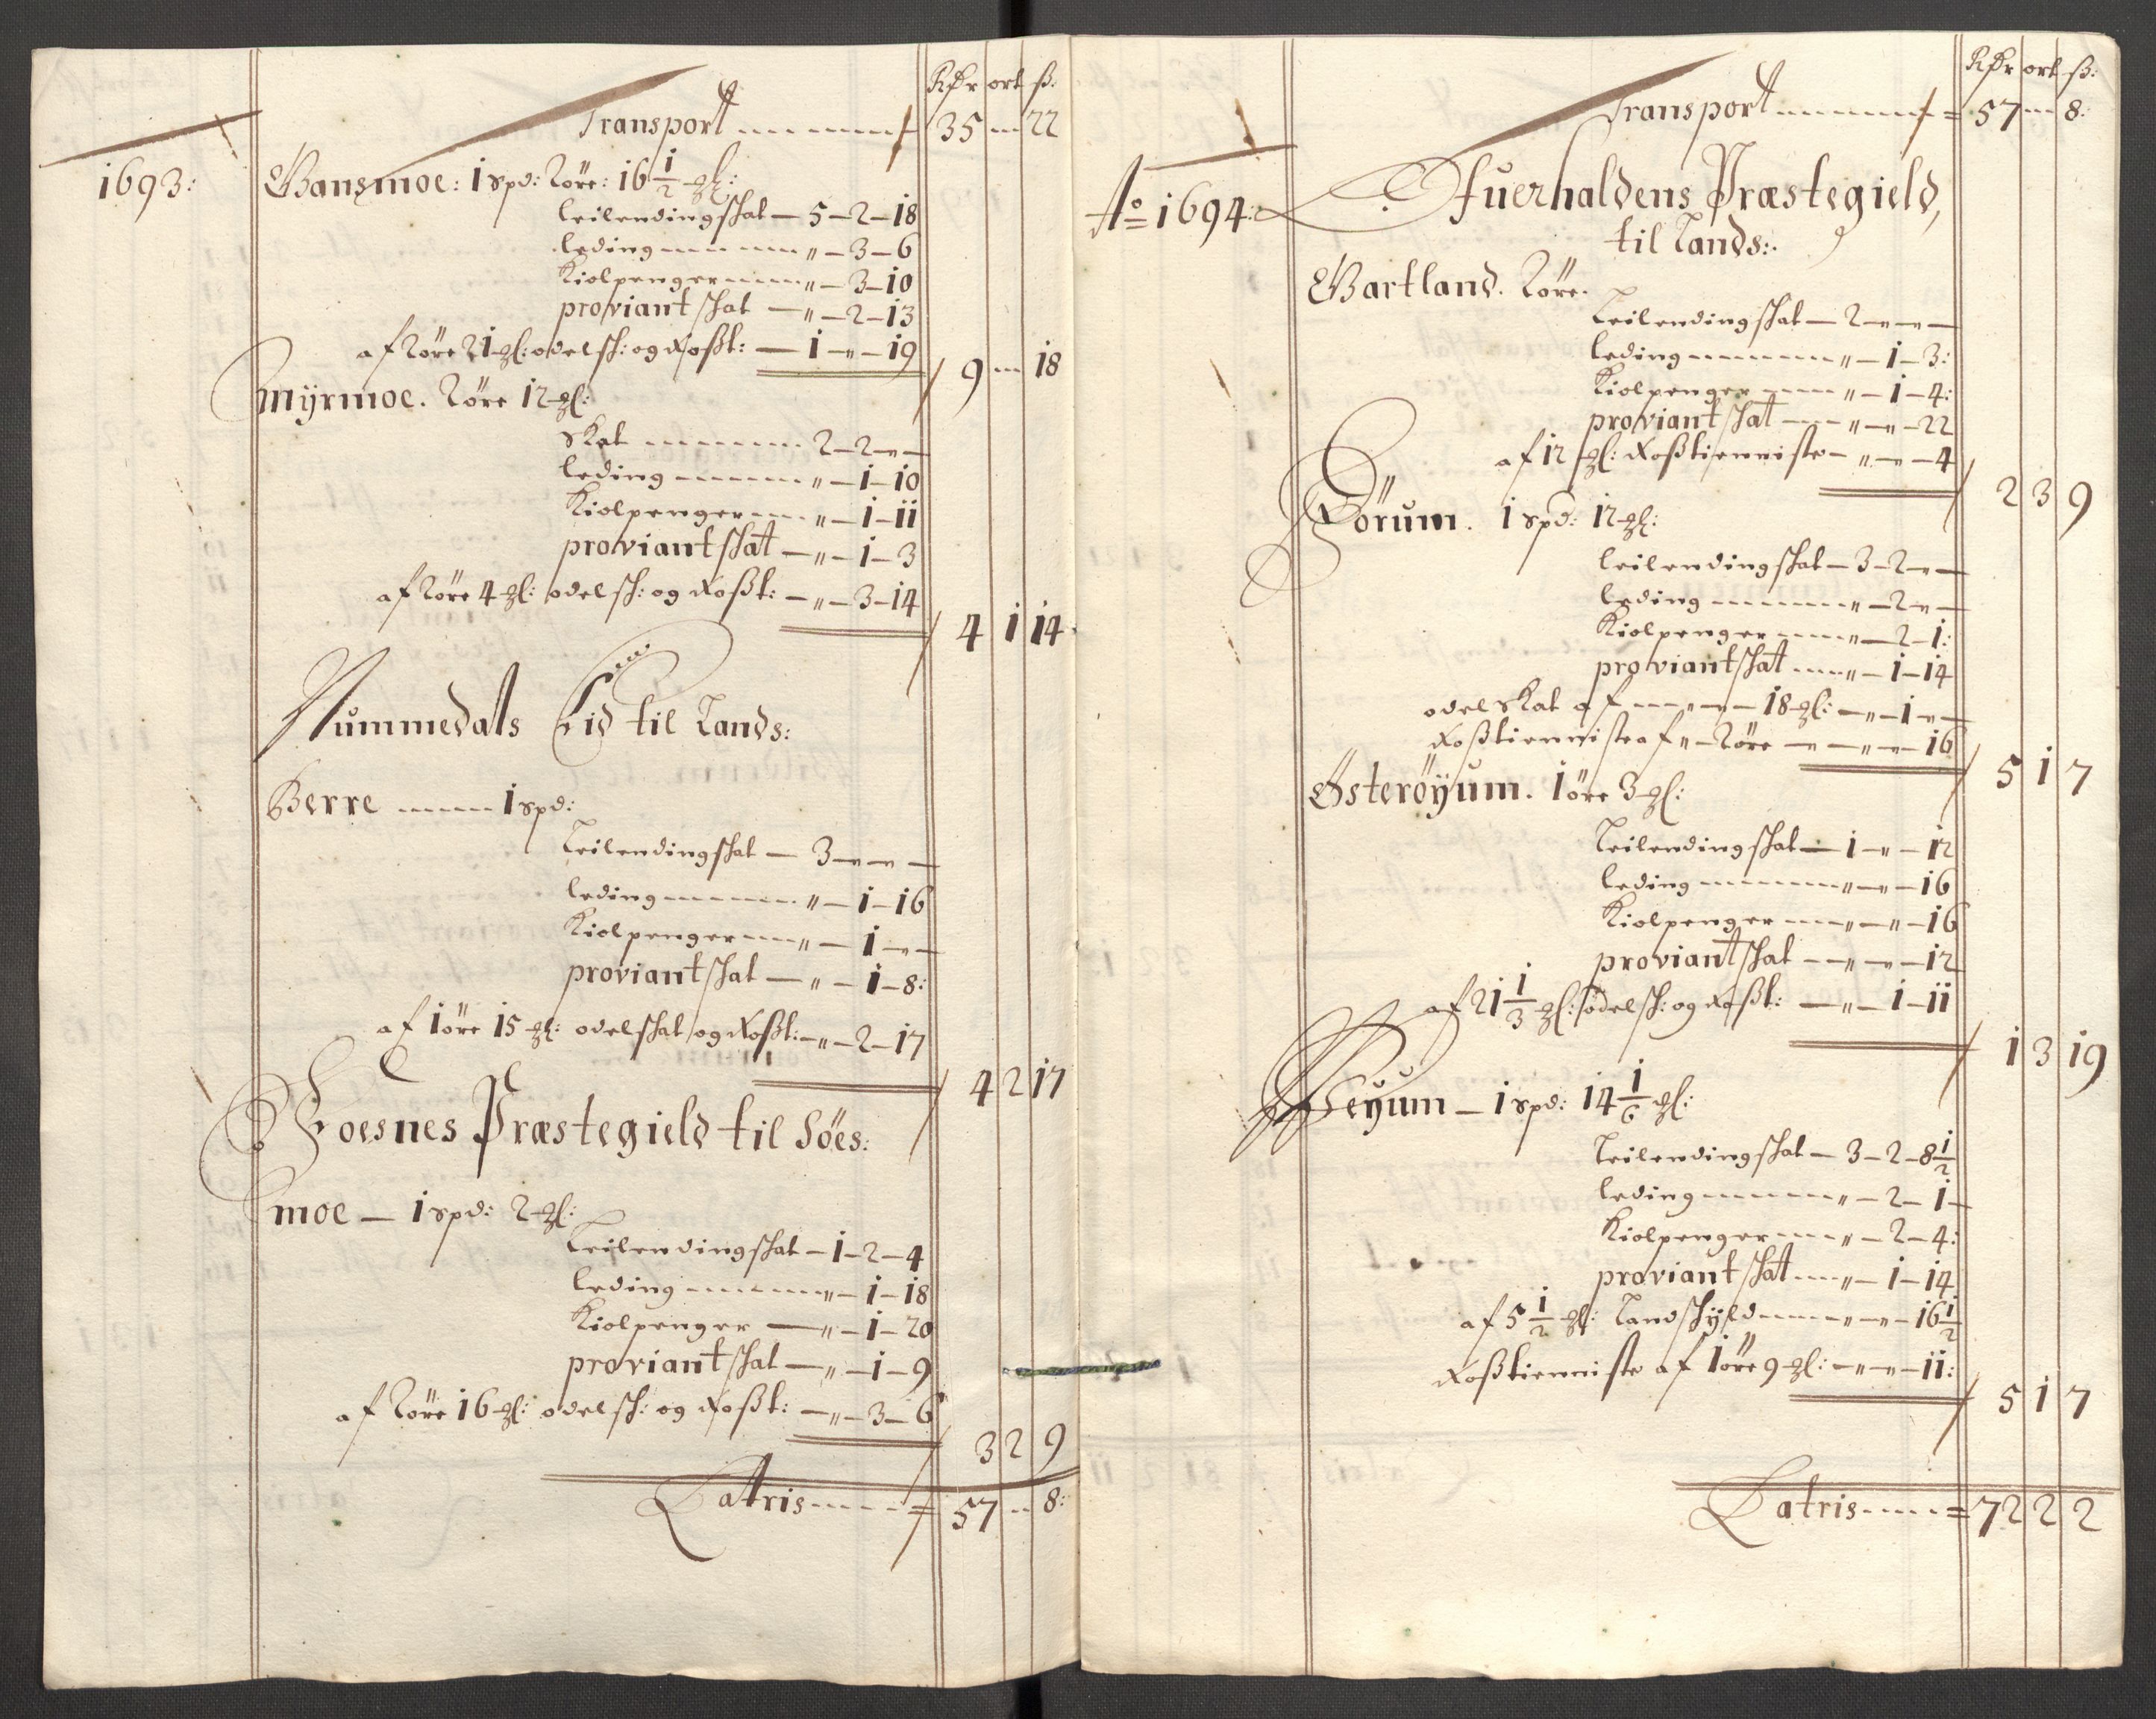 Rdr ort ß:
Transport ------- 35 -- 22
1693:
Gansmoe: 1 spd: 2 öre: 16 1/2 gl:
leilendingschat — 5 – 2 – 18
leding ------- " – 3 – 6
Kiolpenger ------ " – 3 – 10
proviantschat — " – 2 – 13
af 2 öre 21 gl: odelsch: og Roßt: — 1 – " – 19
9 -- 18
Myrmoe. 2 öre 12 gl:
Skat -------- 2 – 2 – " –
leding ------- " – 1 – 10
Kiolpenger ---- " – 1 – 11
proviantschat — " – 1 – 3
af 2 öre 4 gl: odelsch: og Roßt: – " – 3 – 14
4 1 14
Nummedals Eid til Lands:
Berre ------ 1 spd:
Leilendingschat — 3 – " – " –
leding ------- " – 1 – 16
Kiolpenger ---- " – 1 – " –
proviantschat — " – 1 – 8:
af 1 öre 15 gl: odelschat og Roßt: – " – 2 – 17
4 2 17
Foesnes Præstegield til Söes:
Moe — 1 spd: 2 gl:
Leilendingschat – 1 – 2 – 4
leding ------- " – 1 – 18
Kiolpenger —– " – 1 – 20
proviantschat — " – 1 – 9
af 2 öre 16 gl: odelsch: og Roßt: – " – 3 – 6
3 2 9
Latris ----- = 57 -- 8:
Rdr ort ß:
Transport ------- = 57 -- 8:
Ao 1694:
Ofuerhaldens Præstegield,
til Lands:
Bartland. 2 öre.
Leilendingschat — 2 – " – " –
leding ------- " – 1 – 3:
Kiolpenger ---- " – 1 – 4:
proviantschat --- " – " – 22
af 12 gl: Roßtienniste – " – " – 4
2 3 9
Rörum. 1 spd: 12 gl:
leilendingschat — 3 – 2 – " –
leding ------- " – 2 – " –
Kiolpenger ----- " – 2 – 1:
proviantschat ---- " – 1 – 14
odelskat af -- " – " – 18 gl: – " – 1 – " –
Roßtienniste af " – 2 öre – " – " – " – 16
5 1 7
Österöyum. 1 öre 3 gl:
Leilendingschat — 1 – " – 12
leding ------- " – " – 16
Kiolpenger ---- " – " – 16
proviantschat – – " – " – 12
af 21 1/3 gl: odelsch: og Roßt: — " – 1 – 11
1 3 19
Weyum – 1 spd: 14 1/6 gl:
Leilendingschat – 3 – 2 – 8 1/2
leding ------- " – 2 – 1 –
Kiolpenger ---- " – 2 – 4:
proviantschat ---- " – 1 – 14
af 5 1/2 gl: Landschyld ------ " – " – 16 1/2
Roßtienniste af 1 öre 9 gl: – " – " – 11:
5 1 7
Latris ----- = 72 2 2